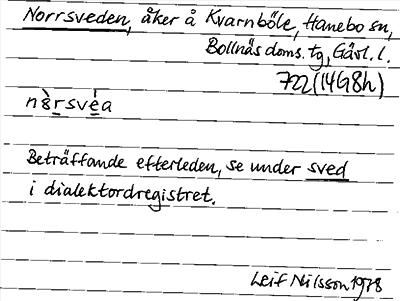 Norrsveden, åker å Kvarnböle, Hanebo sn,
Bollnäs doms. tg, Gävl. l.
722 (14G8h)
Beträffande efterleden, se under sved
i dialektordregistret.
Leif Nilsson 1978